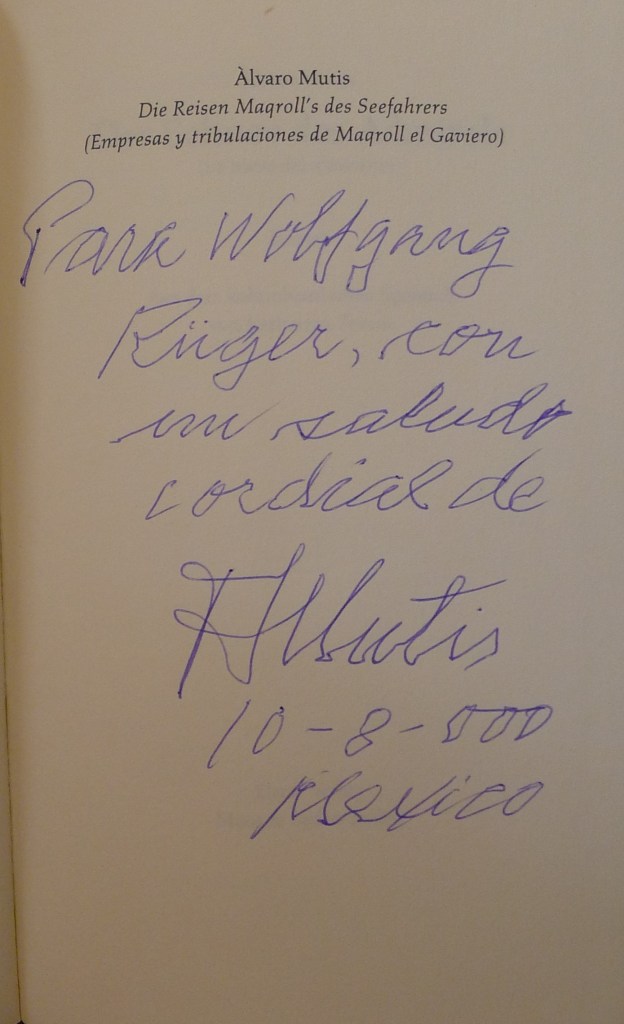 Àlvaro Mutis
Die Reisen Maqroll's des Seefahrers
(Empresas y tribulaciones de Maqroll el Gaviero)
Para Wolfgang
Rüger, con
un saludo
cordial de
AMutis
10-8-000
Mexico